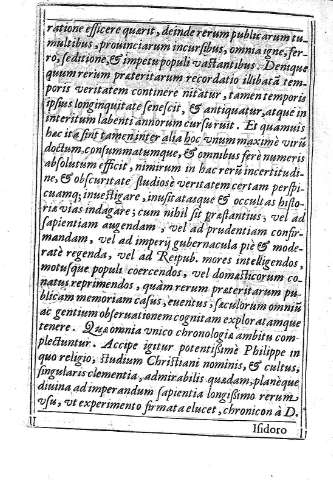 ratione efficere quærit, deinde rerum publicarum tu-
multibus, prouinciarum incursibus, omnia igne, fer-
ro, seditione, & impetu populi vastantibus. Denique
quum rerum præteritarum recordatio illibatā tem-
poris veritatem continere nitatur, tamen temporis
ipsius longinquitate senescit, & antiquatur, atque in
interitum labenti annorum cursu ruit. Et quamuis
hac ita sint tamen inter alia hoc vnum maximè virū
doctum, consummatumque, & omnibus ferè numeris
absolutum efficit, nimirum in hac rerū incertitudi-
ne, & obscuritate studiosè veritatem certam perspi-
cuamq; inuestigare, inusitatasque & occultas histo-
ria vias indagare; cum nihil sit præstantius, vel ad
sapientiam augendam, vel ad prudentiam confir-
mandam, vel ad imperij gubernacula piè & mode-
ratè regenda, vel ad Reipub. mores intelligendos,
motusque populi coercendos, vel domasticorum co-
natus reprimendos, quàm rerum præteritarum pu-
blicam memoriam casus, euentus, sæculorum omniū
ac gentium obseruationem cognitam exploratamque
tenere. Quæ omnia vnico chronologiæ ambitu com-
plectuntur. Accipe igitur potentissimè Philippe in
quo religio, studium Christiani nominis, & cultus,
singularis clementia, admirabilis quædam, planèque
diuina ad imperandum sapientia longissimo rerum
vsu, vt experimento firmata elucet, chronicon à D.
Isidoro